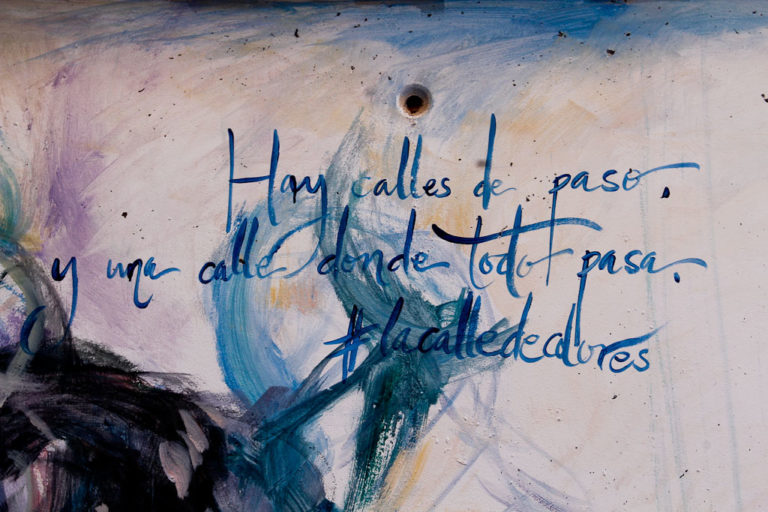 Hay calles de paso.
y una calle donde todo pasa.
#lacalledecolores